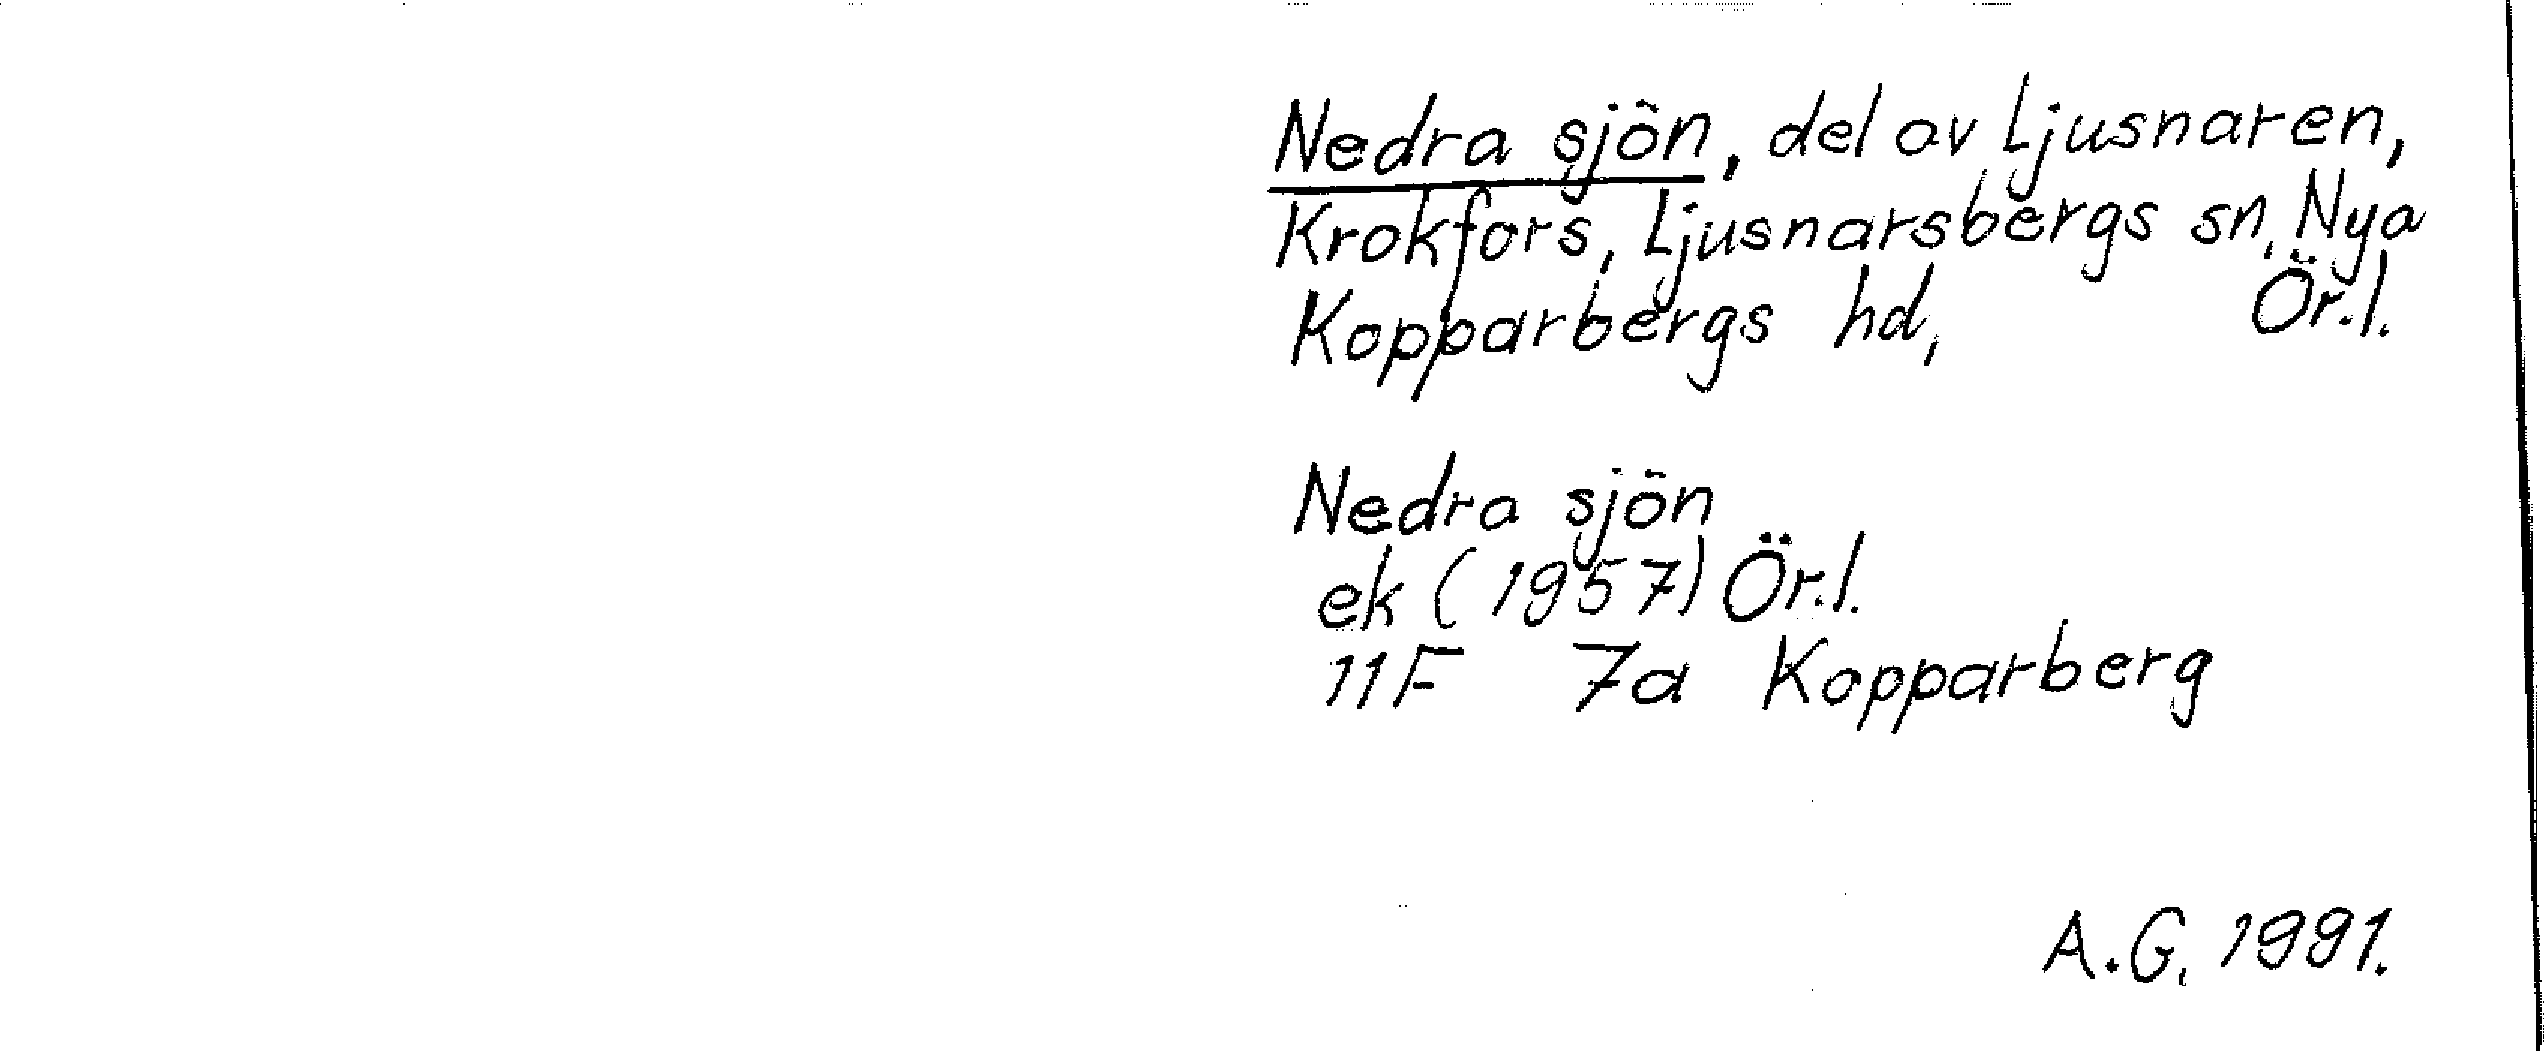 Nedra sjön, del av Ljusnaren,
Krokfors, Ljusnarsbergs sn, Nya
Kopparbergs hd, Ör.l.
Nedra sjön
ek (1957) Ör.l.
11F 7a Kopparberg
A.G. 1991.